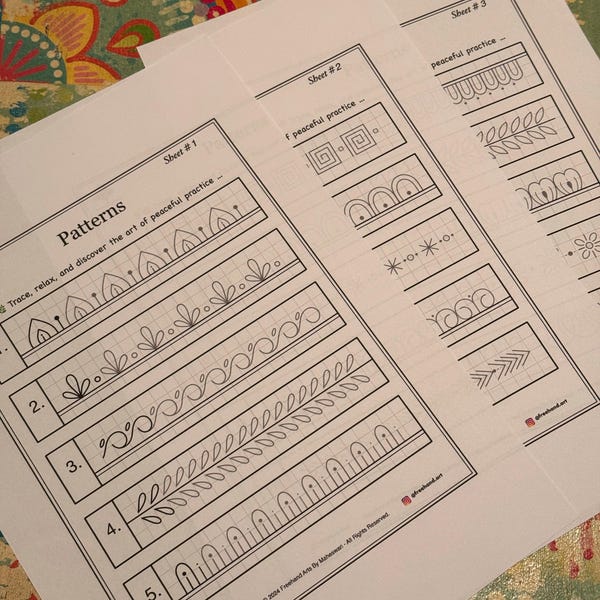 Sheet # 1
Patterns
Trace, relax, and discover the art of peaceful practice ...
2.
3.
4.
5.
@freehand.art
© 2024 Freehand Arts By Maheswari - All Rights Reserved.
Sheet # 2
f peaceful practice ...
@freehand.art
Sheet # 3
peaceful practice ...